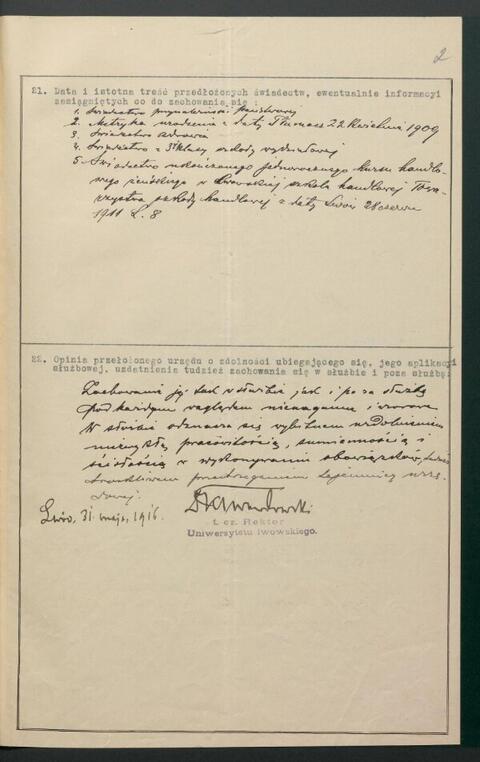 2
21. Data i istotna treść przedłożonych świadectw, ewentualnie informacyi
zasiągniętych co do zachowania się :
1. Świadectwo przynależności państwowej
2. Metryka urodzenia z daty Tłumacz 22 kwietnia 1909
3. Świadectwo zdrowia
4. Świadectwo z 3 klasy szkoły wydziałowej
5. Świadectwo ukończonego jednorocznego kursu handlo-
wego żeńskiego w Lwowskiej szkole handlowej Towa-
rzystwa szkoły handlowej z daty Lwów 28 czerwca
1911 L. 8
22. Opinia przełożonego urzędu o zdolności ubiegającego się, jego aplikacyi
służbowej, uzdatnienia tudzież zachowania się w służbie i poza służbą:
Zachowanie jej tak w służbie jak i poza służbą
pod każdym względem nienaganne i wzorowe
W służbie odznacza się wybitnem uzdolnieniem
niezwykłą pracowitością, sumiennością i
ścisłością w wykonywaniu obowiązków,
przestrzeganiem tajemnicy urzę-
dowej.
Lwów, 31. maja, 1916.
t. cz. Rektor
Uniwersytetu lwowskiego.